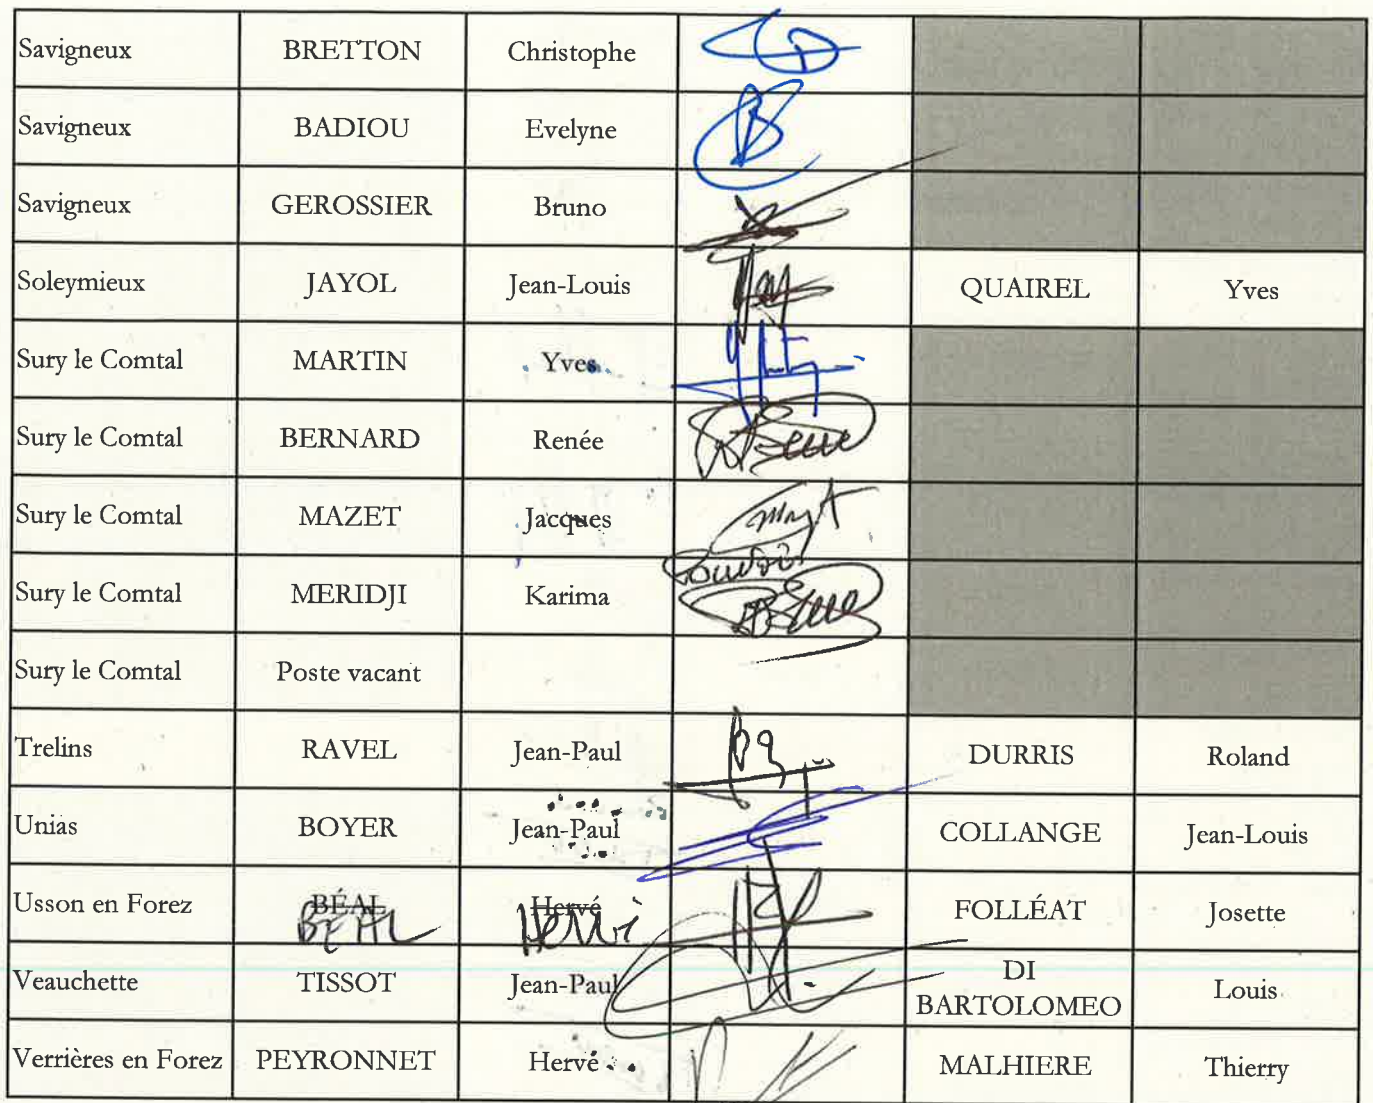 Savigneux BRETTON Christophe
Savigneux BADIOU Evelyne
Savigneux GEROSSIER Bruno
Soleymieux JAYOL Jean-Louis QUAIREL Yves
Sury le Comtal MARTIN Yves
Sury le Comtal BERNARD Renée
Sury le Comtal MAZET Jacques
Pouvoir
Sury le Comtal MERIDJI Karima
Sury le Comtal Poste vacant
Trelins RAVEL Jean-Paul DURRIS Roland
Unias BOYER Jean-Paul COLLANGE Jean-Louis
Usson en Forez BÉAL Hervé FOLLÉAT Josette
BEAL Henri
Veauchette TISSOT Jean-Paul DI BARTOLOMEO Louis
Verrières en Forez PEYRONNET Hervé MALHIERE Thierry